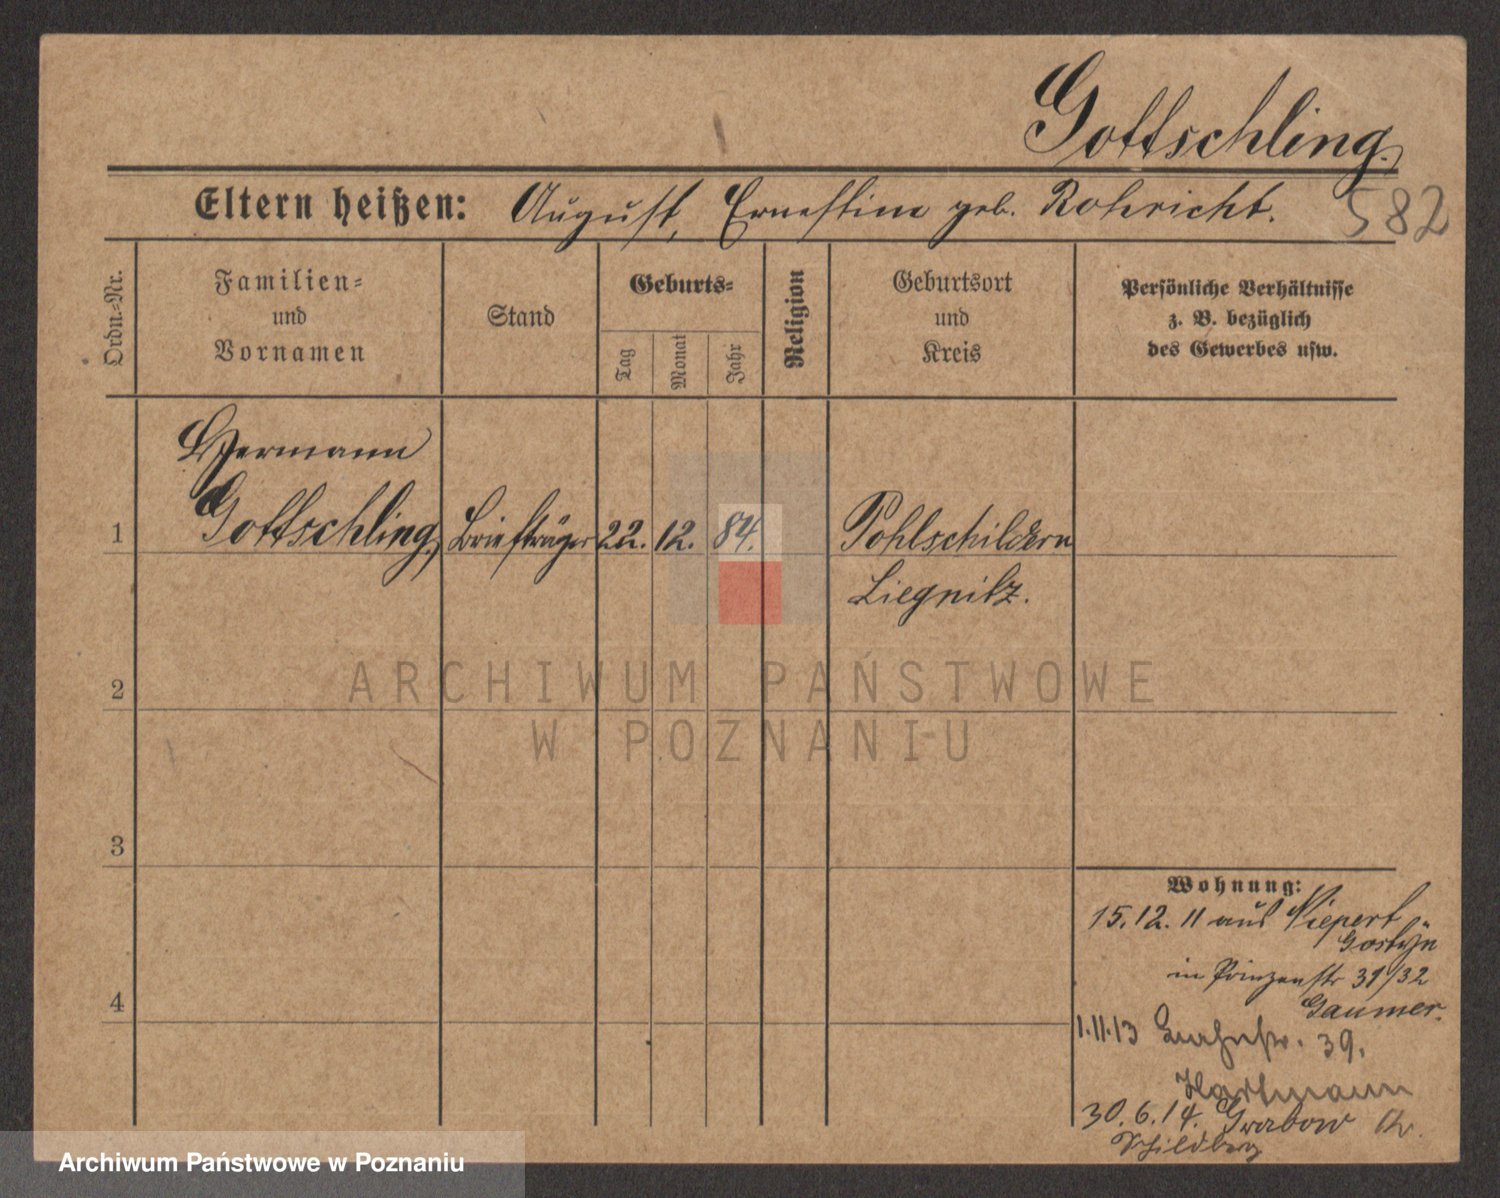 Gottschling.
582
Eltern heißen: August, Ernestine geb. Rohricht.
Ordn.-Nr.
Familien-
und
Vornamen
Stand
Geburts-
Tag
Monat
Jahr
Religion
Geburtsort
und
Kreis
Persönliche Verhältnisse
z. B. bezüglich
des Gewerbes usw.
Hermann
1 Gottschling, Briefträger 22. 12. 84. Pohlschildern
Liegnitz.
2
ARCHIWUM PAŃSTWOWE
W POZNANIU
3
4
Wohnung:
15.12.11 aus Niepert
Gostyn
in Prinzenstr 31/32
Gaumer.
1.11.13 39.
Hartmann
30.6.14. Grabow Kr.
Schildberg
Archiwum Państwowe w Poznaniu